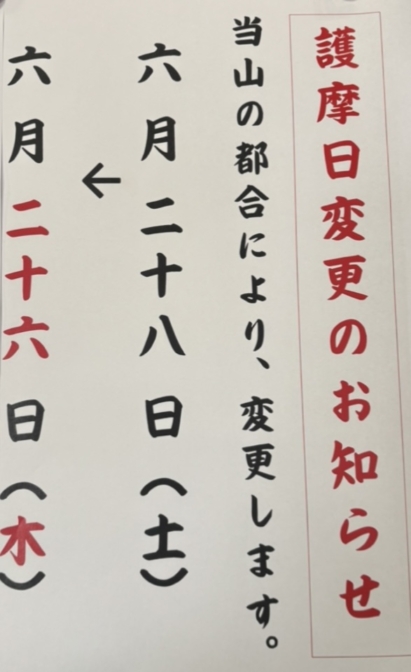 護摩日変更のお知らせ
当山の都合により、変更します。
六月二十八日(土)
←
六月二十六日(木)